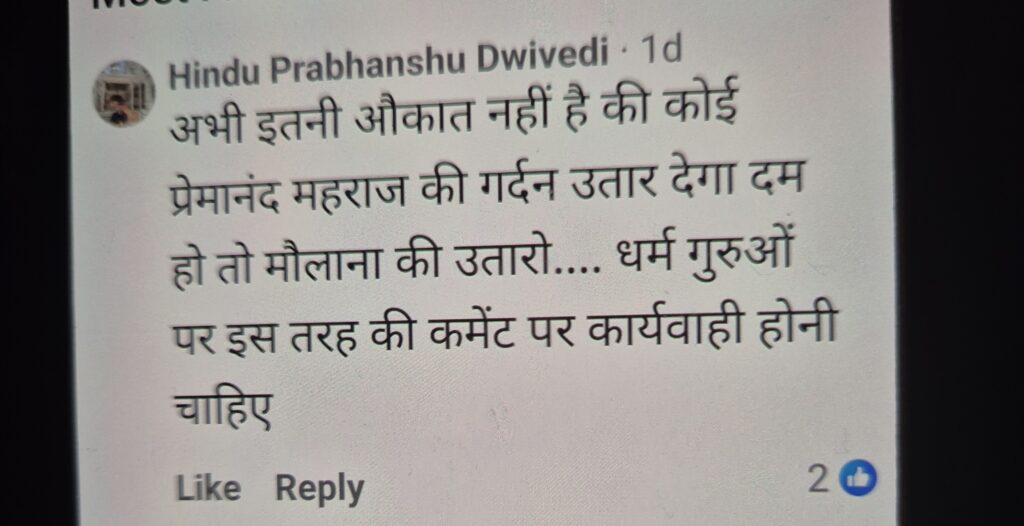 Hindu Prabhanshu Dwivedi · 1d
अभी इतनी औकात नहीं है की कोई
प्रेमानंद महराज की गर्दन उतार देगा दम
हो तो मौलाना की उतारो.... धर्म गुरुओं
पर इस तरह की कमेंट पर कार्यवाही होनी
चाहिए
Like Reply 2